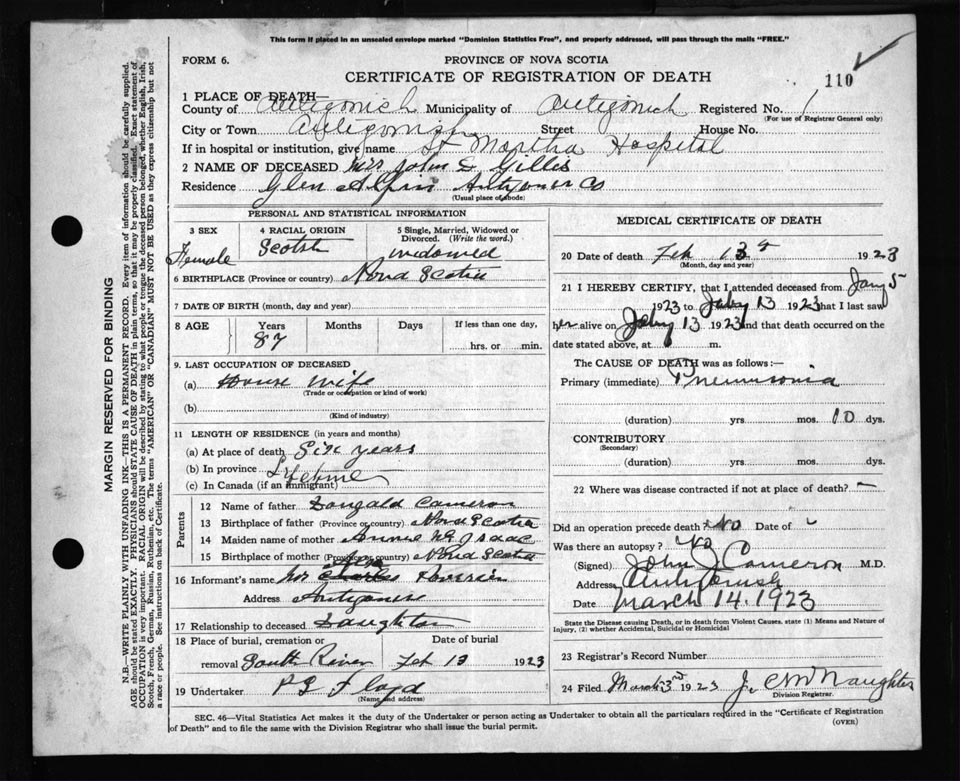 This form if placed in an unsealed envelope marked "Dominion Statistics Free", and properly addressed, will pass through the mails "FREE."
FORM 6.
PROVINCE OF NOVA SCOTIA
CERTIFICATE OF REGISTRATION OF DEATH
110
1 PLACE OF DEATH—
County of Antigonish Municipality of Antigonish Registered No. 1
(For use of Registrar General only)
City or Town Antigonish Street House No.
If in hospital or institution, give name St Martha Hospital
2 NAME OF DECEASED Mrs John D Gillis
Residence Glen Alpin Antigonish Co
(Usual place of abode)
PERSONAL AND STATISTICAL INFORMATION
3 SEX 4 RACIAL ORIGIN 5 Single, Married, Widowed or
Divorced. (Write the word.)
Female Scotch widowed
6 BIRTHPLACE (Province or country) Nova Scotia
7 DATE OF BIRTH (month, day and year)
8 AGE Years Months Days If less than one day,
87 hrs. or min.
9. LAST OCCUPATION OF DECEASED
(a) House Wife
(Trade or occupation or kind of work)
(b)
(Kind of industry)
11 LENGTH OF RESIDENCE (in years and months)
(a) At place of death Six years
(b) In province Lifetime
(c) In Canada (if an immigrant)
Parents
12 Name of father Dougald Cameron
13 Birthplace of father (Province or country) Nova Scotia
14 Maiden name of mother Annie Mc Isaac
15 Birthplace of mother (Province or country) Nova Scotia
16 Informant's name Mrs Charles
Address Antigonish
17 Relationship to deceased Daughter
18 Place of burial, cremation or Date of burial
removal South River Feb 13 1923
19 Undertaker P S Floyd
(Name and address)
MEDICAL CERTIFICATE OF DEATH
20 Date of death Feb 13th 1923
(Month, day and year)
21 I HEREBY CERTIFY, that I attended deceased from Jany 5
1923 to Feby 13 1923 that I last saw
her alive on Feby 13 1923 and that death occurred on the
date stated above, at m.
The CAUSE OF DEATH was as follows:—
Primary (immediate) Pneumonia
(duration) yrs. mos. 10 dys.
CONTRIBUTORY
(Secondary)
(duration) yrs. mos. dys.
22 Where was disease contracted if not at place of death? —
Did an operation precede death? No Date of
Was there an autopsy? No
(Signed) John J Cameron M.D.
Address Antigonish
Date March 14. 1923
State the Disease causing Death, or in death from Violent Causes, state (1) Means and Nature of
Injury, (2) whether Accidental, Suicidal or Homicidal
23 Registrar's Record Number
24 Filed March 3rd 1923 J. C McNaughton
Division Registrar.
SEC. 46—Vital Statistics Act makes it the duty of the Undertaker or person acting as Undertaker to obtain all the particulars required in the "Certificate of Registration
of Death" and to file the same with the Division Registrar who shall issue the burial permit.
(OVER)
MARGIN RESERVED FOR BINDING
N.B.—WRITE PLAINLY WITH UNFADING INK—THIS IS A PERMANENT RECORD. Every item of information should be carefully supplied.
AGE should be stated EXACTLY. PHYSICIANS should STATE CAUSE OF DEATH in plain terms, so that it may be properly classified. Exact statement of
OCCUPATION is very important. RACIAL ORIGIN will be described by stating to what people or tongue the deceased person belonged, whether English, Irish,
Scotch, French, German, Russian, Ruthenian, etc. The terms "AMERICAN" or "CANADIAN" MUST NOT BE USED as they express citizenship but not
a race or people. See instructions on back of Certificate.